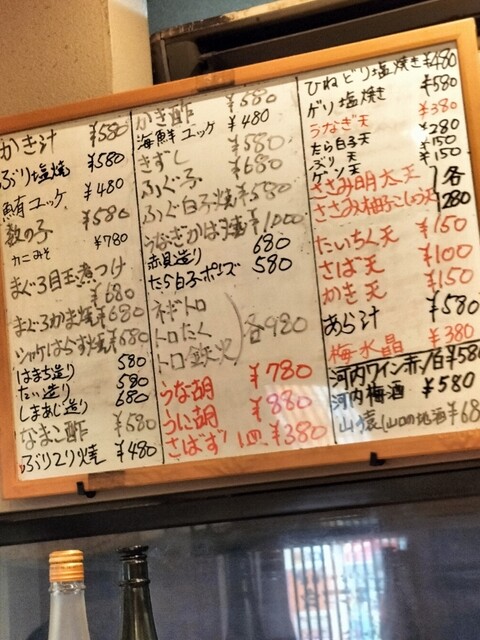 かき汁 ¥580
ぶり塩焼 ¥580
鮪ユッケ ¥480
数の子 ¥580
カニみそ ¥780
まぐろ目玉煮つけ
¥680
まぐろかま焼 ¥680
シャケはらす焼 ¥680
はまち造り 580
たい造り 580
しまあじ造り 680
なまこ酢 ¥580
ぶりてり焼 ¥480
かき酢 ¥580
海鮮ユッケ ¥480
きずし ¥580
ふぐ子 ¥680
ふぐ白子焼 ¥580
うなぎかば焼 ¥1000
赤貝造り 680
たら白子ポン酢 580
ネギトロ
トロたく 各980
トロ鉄火
うな胡 ¥780
うに胡 ¥880
さばずし ¥380
ひねどり塩焼き ¥480
ゲソ塩焼き ¥580
うなぎ天 ¥380
たら白子天 ¥280
ぶり天 ¥150
ゲソ天 ¥150
ささみ明太天 各
ささみ柚子こしょう天 280
たいちく天 ¥150
さば天 ¥100
かき天 ¥150
あら汁 ¥580
梅水晶 ¥380
河内ワイン赤/白 ¥580
河内梅酒 ¥580
山猿(山口の地酒 ¥68